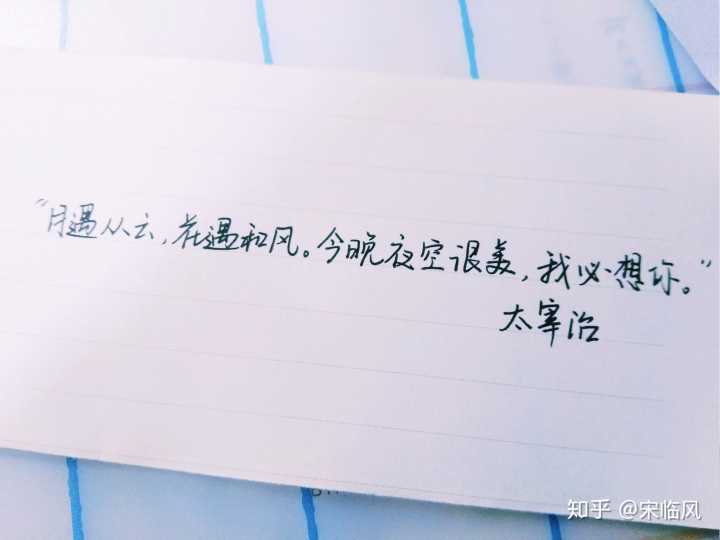 “月遇从云，花遇和风。今晚夜空很美，我必想你。”
太宰治
知乎 @宋临风